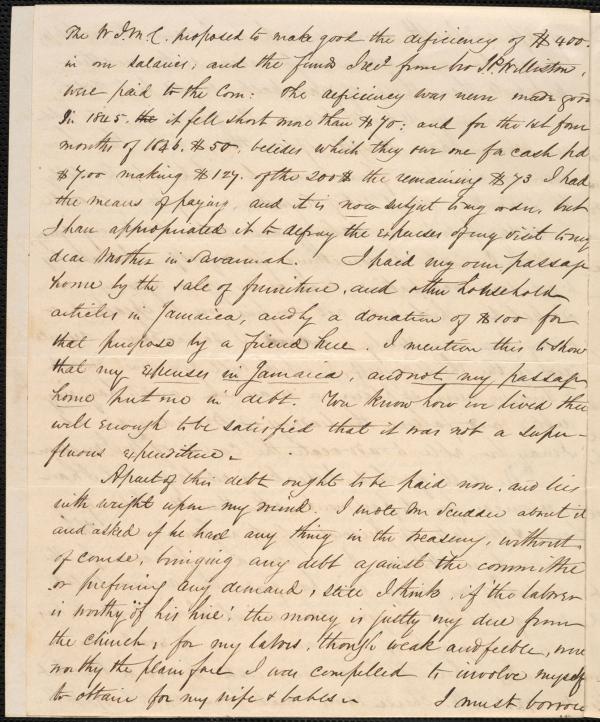 The W.I.M.C. proposed to make good the deficiency of $400.
in our salaries; and the funds Recd from bro J.P. Williston,
were paid to the Com: The deficiency was never made good
In 1845. the it fell short more than $70; and for the 1st four
months of 1846. $50, besides which they owe one for cash pd
$7.00 making $127. of the 200$ the remaining $73 I had
the means of paying, and it is now subject to my order, but
I have appropriated it to defray the expenses of my visit to my
dear Mother in Savannah. I paid my own passage
home by the sale of furniture, and other household
articles in Jamaica, and by a donation of $100 for
that purpose by a friend here. I mention this to show
that my expenses in Jamaica, and not my passage
home put me in debt. You know how we lived there
well enough to be satisfied that it was not a super-
fluous expenditure.
A part of this debt ought to be paid now, and lies
with weight upon my mind. I wrote Mr Scudder about it
and asked if he had any thing in the treasury, without
of course, bringing any debt against the committee
or prefering any demand, still I think, if "the laborer
is worthy of his hire", the money is justly my due from
the church; for my labors, though weak and feeble, were
worthy the plain fare I was compelled to involve myself
to obtain for my wife & babes. I must borrow